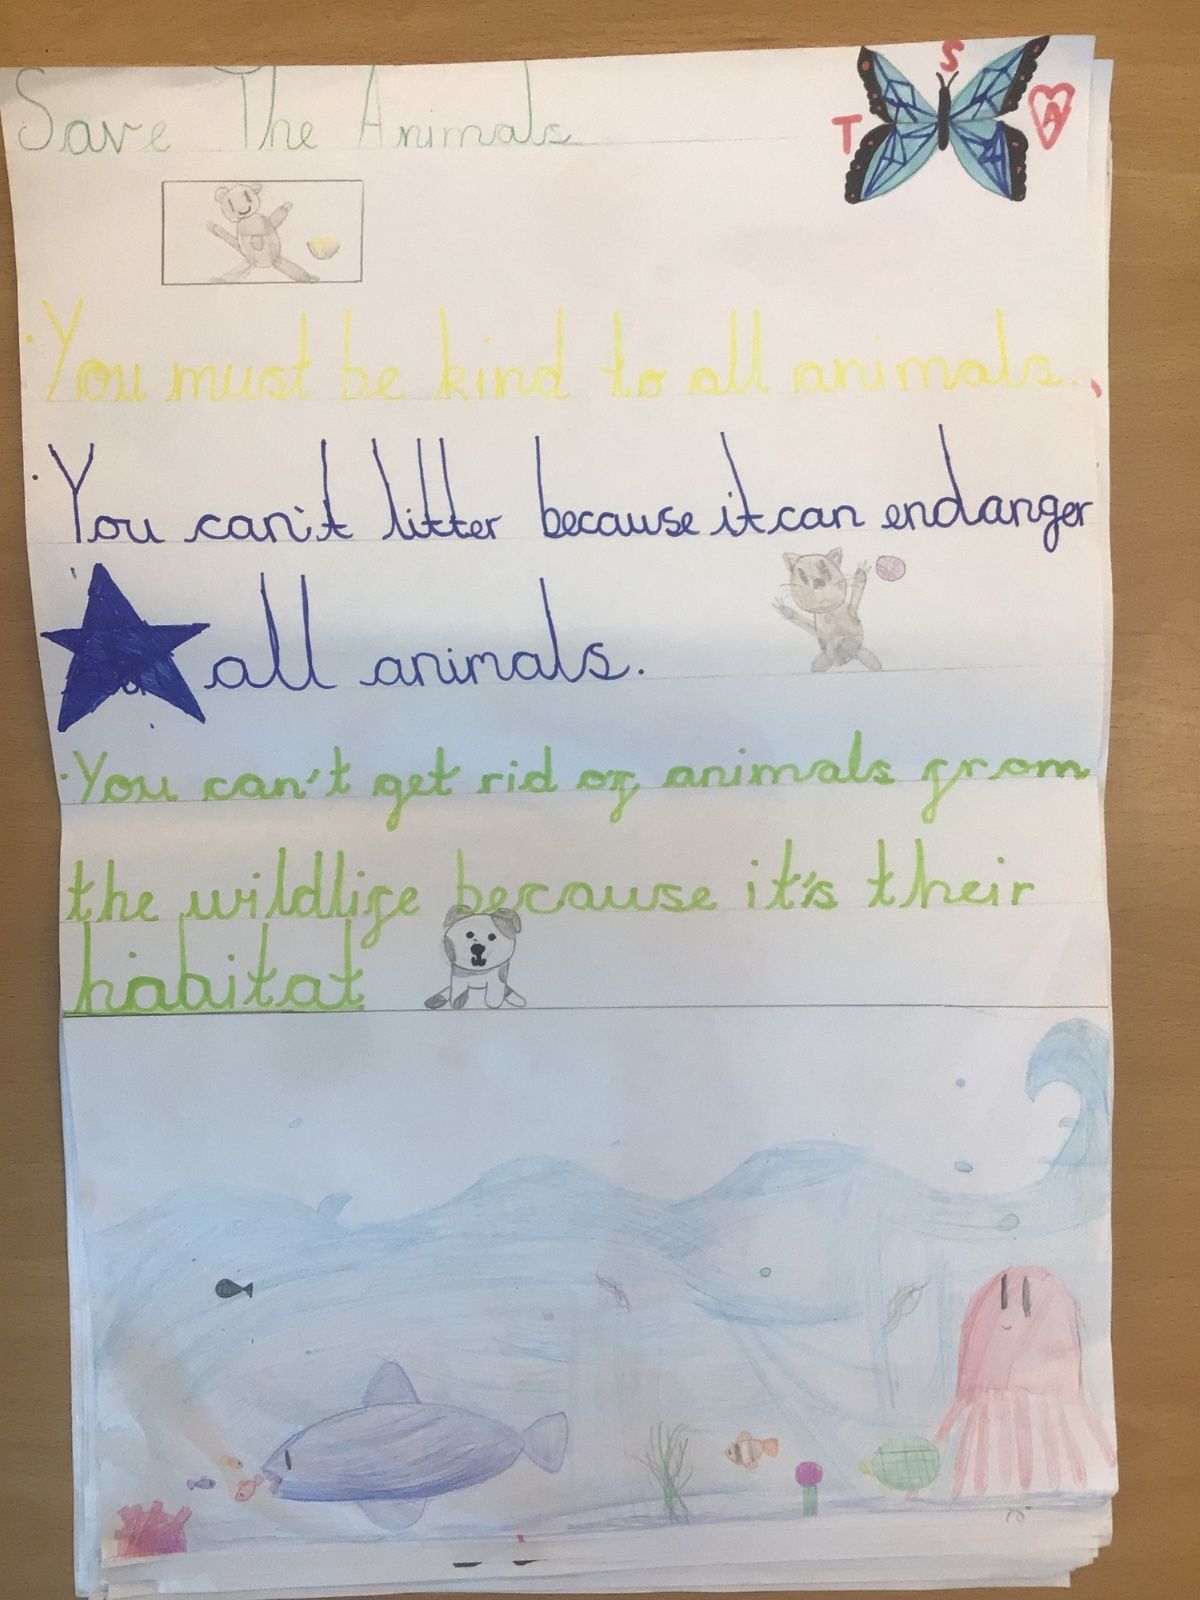 Save The Animals
T S A
· You must be kind to all animals.
· You can't litter because it can endanger
all animals.
· You can't get rid of animals from
the wildlife because it's their
habitat.